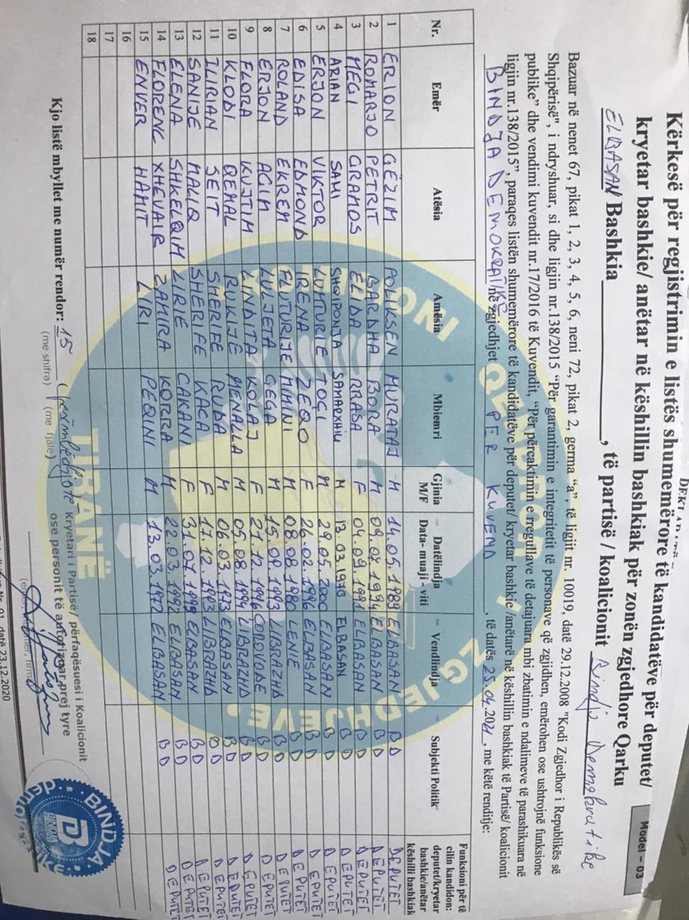 Model – 03
Kërkesë për regjistrimin e listës shumemërore të kandidatëve për deputet/
kryetar bashkie/ anëtar në këshillin bashkiak për zonën zgjedhore Qarku
ELBASAN Bashkia , të partisë / koalicionit Bindja Demokratike
Bazuar në nenet 67, pikat 1, 2, 3, 4, 5, 6, neni 72, pikat 2, germa "a", të ligjit nr. 10019, datë 29.12.2008 "Kodi Zgjedhor i Republikës së
Shqipërisë", i ndryshuar, si dhe ligjin nr.138/2015 "Për garantimin e integritetit të personave që zgjidhen, emërohen ose ushtrojnë funksione
publike" dhe vendimi kuvendit nr.17/2016 të Kuvendit, "Për përcaktimin e rregullave të detajuara mbi zbatimin e ndalimeve të parashikuara në
ligjin nr.138/2015", paraqes listën shumemërore të kandidatëve për deputet/ kryetar bashkie /anëtarë në këshillin bashkiak të Partisë/ koalicionit
BINDJA DEMOKRATIKE të zgjedhjet PER KUVEND, të datës 25.04.2021, me këtë renditje:
Nr. Emër Atësia Amësia Mbiemri Gjinia M/F Datëlindja Data- muaji - viti Vendlindja Subjekti Politik Funksioni për të cilin kandidon: deputet/kryetar bashkie/anëtar këshilli bashkiak
1 ERION GËZIM POLIKSEN MURATAJ M 14.05.1989 ELBASAN BD DEPUTET
2 ROMARJO PETRIT BARDHA BORA M 09.07.1994 ELBASAN BD DEPUTET
3 MEGI GRAMOS ELIDA RRASA F 04.09.1991 ELBASAN BD DEPUTET
4 ARIAN SAMI SHQIPONJA SAMARXHIU M ELBASAN BD DEPUTET
5 ERJON VIKTOR LUMTURIE TOÇI M 29.05.2000 ELBASAN BD DEPUTET
6 EDISA EDMOND IRENA ZEQO F 26.02.1996 ELBASAN BD DEPUTET
7 ROLAND EKREM FLUTURIJE MIMINI M 08.08.1980 BD DEPUTET
8 ERJON AGIM LULJETA GEGA M 15.09.1993 LIBRAZHD BD DEPUTET
9 FLORA KUJTIM LINDITA KOLAJ F 21.12.1996 BD DEPUTET
10 KLODI QEMAL RUKIJE MENALLA M 05.08.1994 LIBRAZHD BD DEPUTET
11 ILIRIAN SEIT SHERIFE RUDA M 06.03.1973 ELBASAN BD DEPUTET
12 SANIJE MALIQ SHERIFE KACA F 17.12.1993 LIBRAZHD BD DEPUTET
13 ELENA SHKELQIM LIRIE CAKANI F 31.07.1999 ELBASAN BD DEPUTET
14 FLORENC XHEVAIR ZAMIRA KORRA M 22.03.1992 ELBASAN BD DEPUTET
15 ENVER HAMIT LIRI PEQINI M 13.03.1972 ELBASAN BD DEPUTET
16
17
18
Kjo listë mbyllet me numër rendor: 15 pesëmbëdhjetë
(me shifra) (me fjalë)
Kryetari i Partisë/ përfaqësuesi i Koalicionit
ose personit të autorizuar prej tyre
datë 23.12.2020
BINDJA
QENDROR
ZGJEDHJEVE
TIRANË